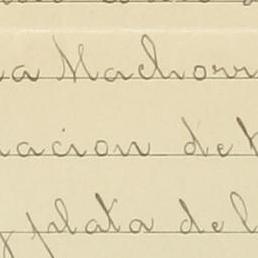 a Machorr
acion de
y plata de l